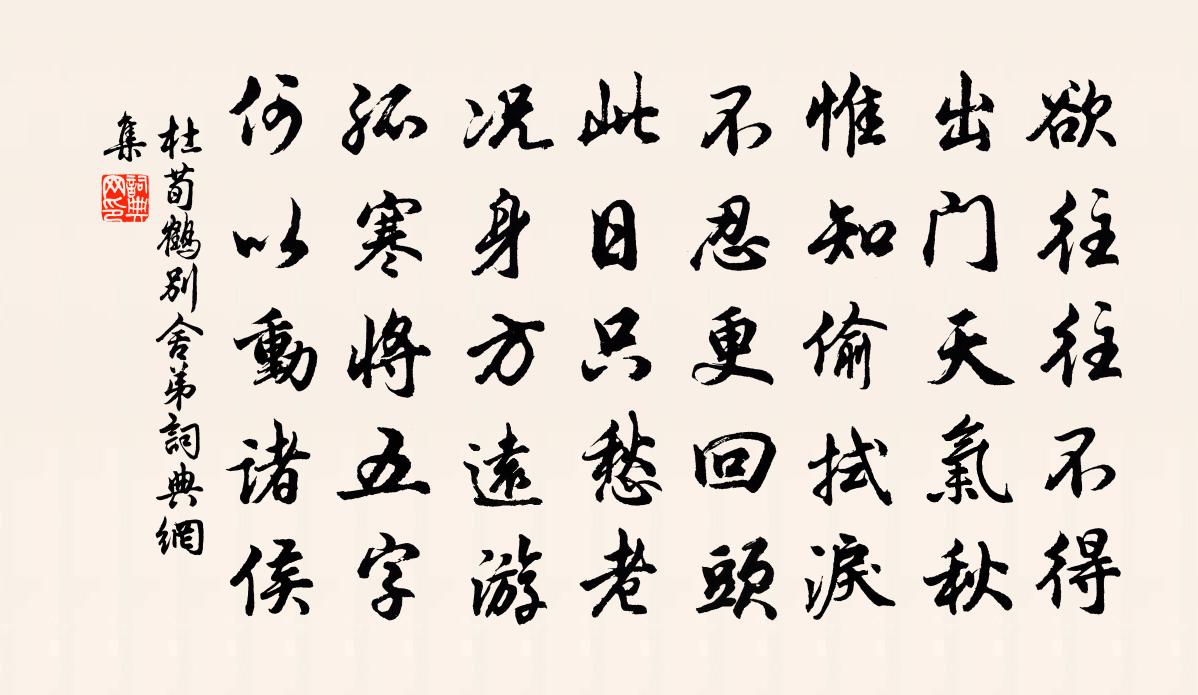 欲往往不得
出门天氣秋
惟知偷拭淚
不忍更回頭
此日只愁老
况身方遠游
孤寒將五字
何以動諸侯
杜荀鶴别舍弟詞典網
集
詞典
网印